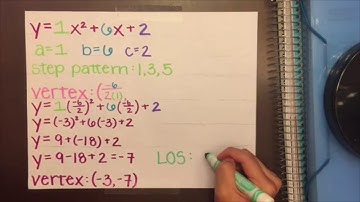 y=1x²+6x+2
a=1 b=6 c=2
step pattern:1,3,5
vertex:(-6/2(1),
y=1(-6/2)²+6(-6/2)+2
y=(-3)²+6(-3)+2
y=9+(-18)+2
y=9-18+2=-7
LOS:
vertex:(-3,-7)